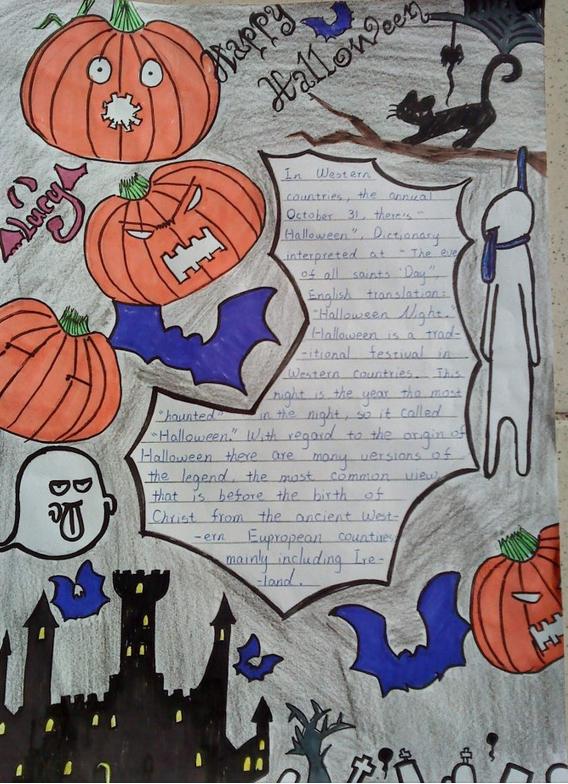 Happy
Halloween
Lucy
In Western
countries, the annual
October 31, there's "
Halloween", Dictionary
interpreted at "The eve
of all saints 'Day"
English translation:
"Halloween Night."
Halloween is a trad-
-itional festival in
Western countries. This
night is the year tha most
"haunted" in the night, so it called
"Halloween." With regard to the origin of
Halloween there are many versions of
the legend, the most common view
that is before the birth of
Christ from the ancient West-
-ern Eupropean countries
mainly including Ire-
-land.